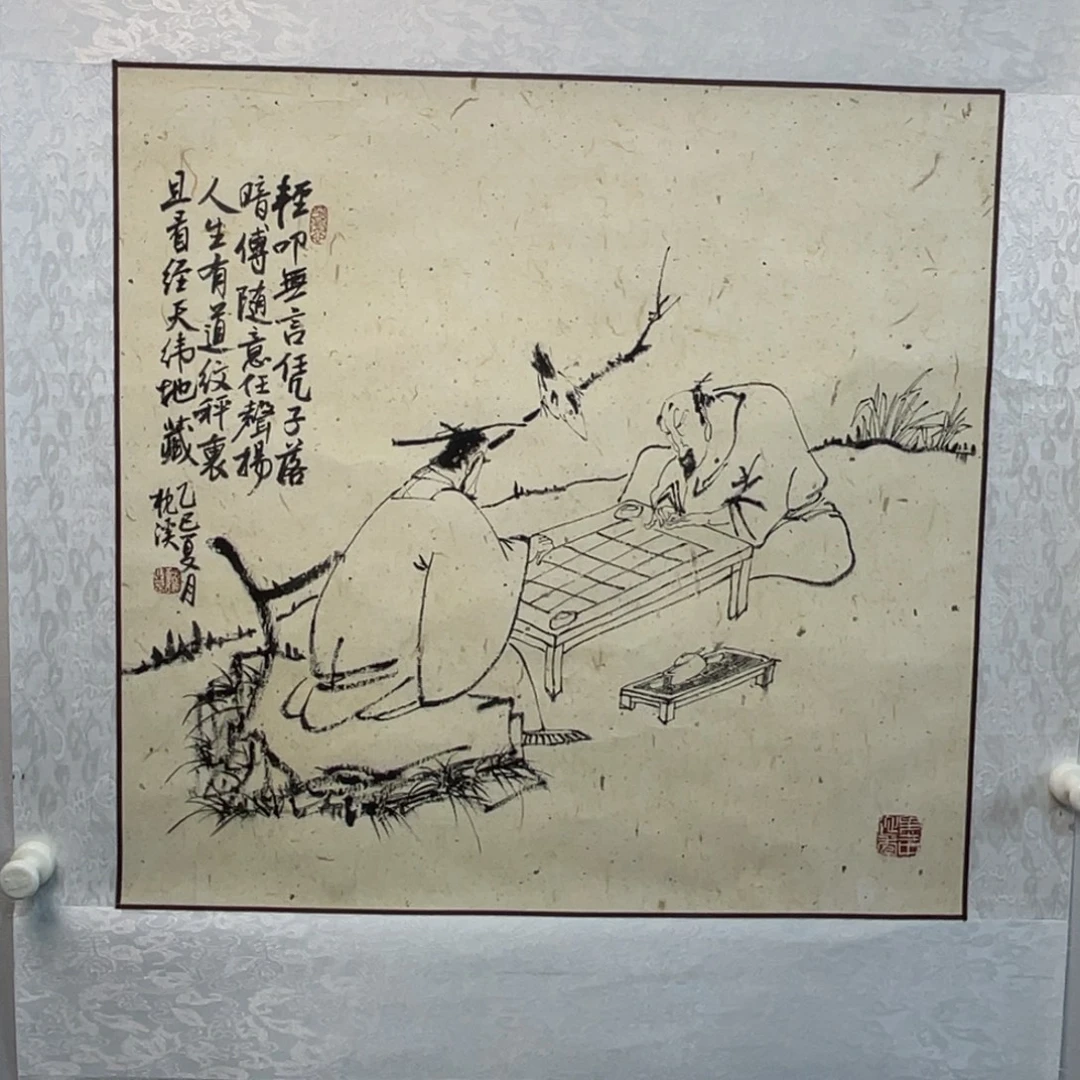 輕叩無言凭子落
暗傅随意任聲揚
人生有道纹秤裏
且看经天纬地藏
乙巳夏月
枕溪